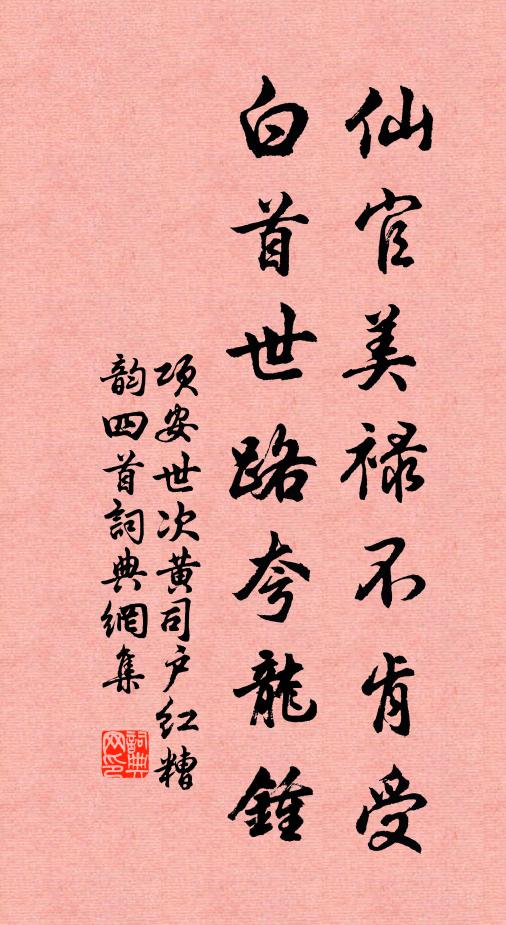 仙官美禄不肯受
白首世路夸龍鍾
項安世次黄司户红糟
韵四首詞典網集
詞典网印